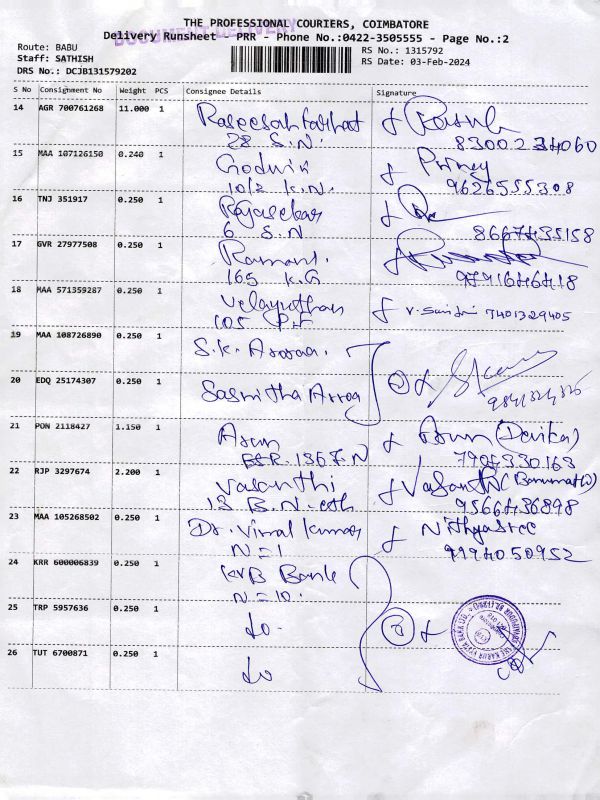 THE PROFESSIONAL COURIERS, COIMBATORE
DOCUMENT DELIVERY
Delivery Runsheet - PRR - Phone No.:0422-3505555 - Page No.:2
Route: BABU
RS No.: 1315792
Staff: SATHISH
RS Date: 03-Feb-2024
DRS No.: DCJB131579202
S No Consignment No Weight PCS Consignee Details Signature
14 AGR 700761268 11.000 1
28 S.N. 8300234060
15 MAA 107126150 0.240 1 Godwin
10/2 K.N. 9626555308
16 TNJ 351917 0.250 1 Rajasekar
6 S.N 8667435158
17 GVR 27977508 0.250 1 Ramani.
165 K.G 9791646418
18 MAA 571359287 0.250 1 Velayuthan
105 7401329405
19 MAA 108726890 0.250 1 S.K. Arora.
20 EDQ 25174307 0.250 1 Sasmitha Arroa
21 PON 2118427 1.150 1 Arun Arun (Devika)
1367 N 7904330163
22 RJP 3297674 2.200 1 Vasanthi Vasanthi (Banumathi)
13 B.N. 9566436898
23 MAA 105268502 0.250 1 Dr. Vimal Kumar Nithyasree
N=1 9194050952
24 KRR 600006839 0.250 1 KVB Bank
N=10.
25 TRP 5957636 0.250 1 do.
26 TUT 6700871 0.250 1 do